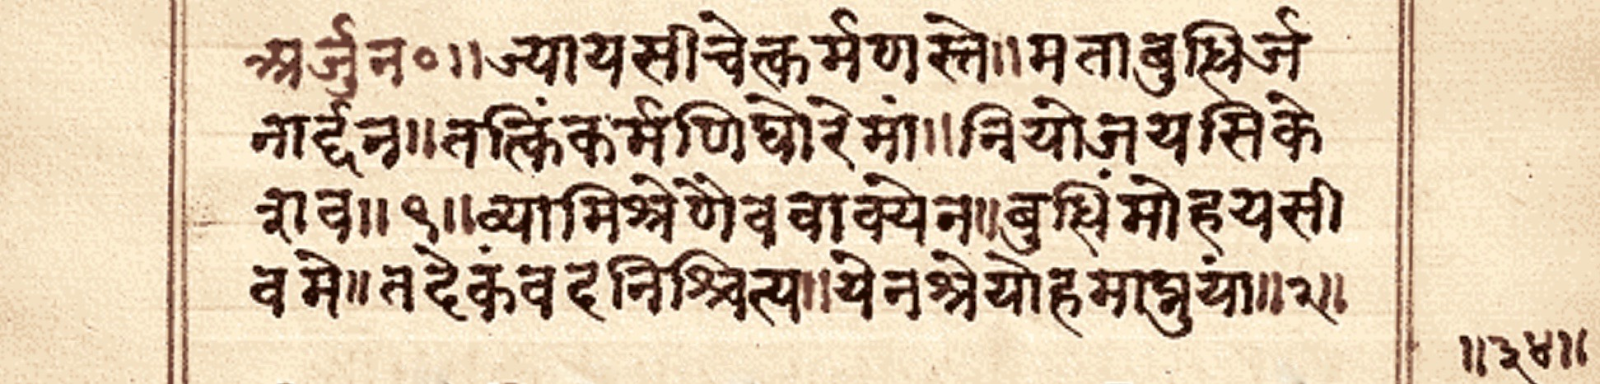 अर्जुन०॥ज्यायसीचेत्कर्मणस्ते॥मताबुधिर्ज
नार्द्दन॥तत्किंकर्मणिघोरेमां॥नियोजयसिके
शव॥१॥व्यामिश्रेणैववाक्येन॥बुधिंमोहयसी
वमे॥तदेकंवदनिश्चित्य॥येनश्रेयोहमाप्नुयां॥२॥
॥३४॥